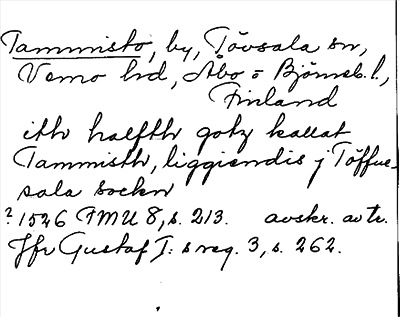 Tammisto, by, Tövsala sn,
Vemo hd, Åbo o Björneb. l.,
Finland
ith halffth gotz kallat
Tammisth, liggiendis j Töffue-
sala sockn
? 1526 FMU 8, s. 213. avskr. av tr.
Jfr Gustaf I: s reg. 3, s. 262.